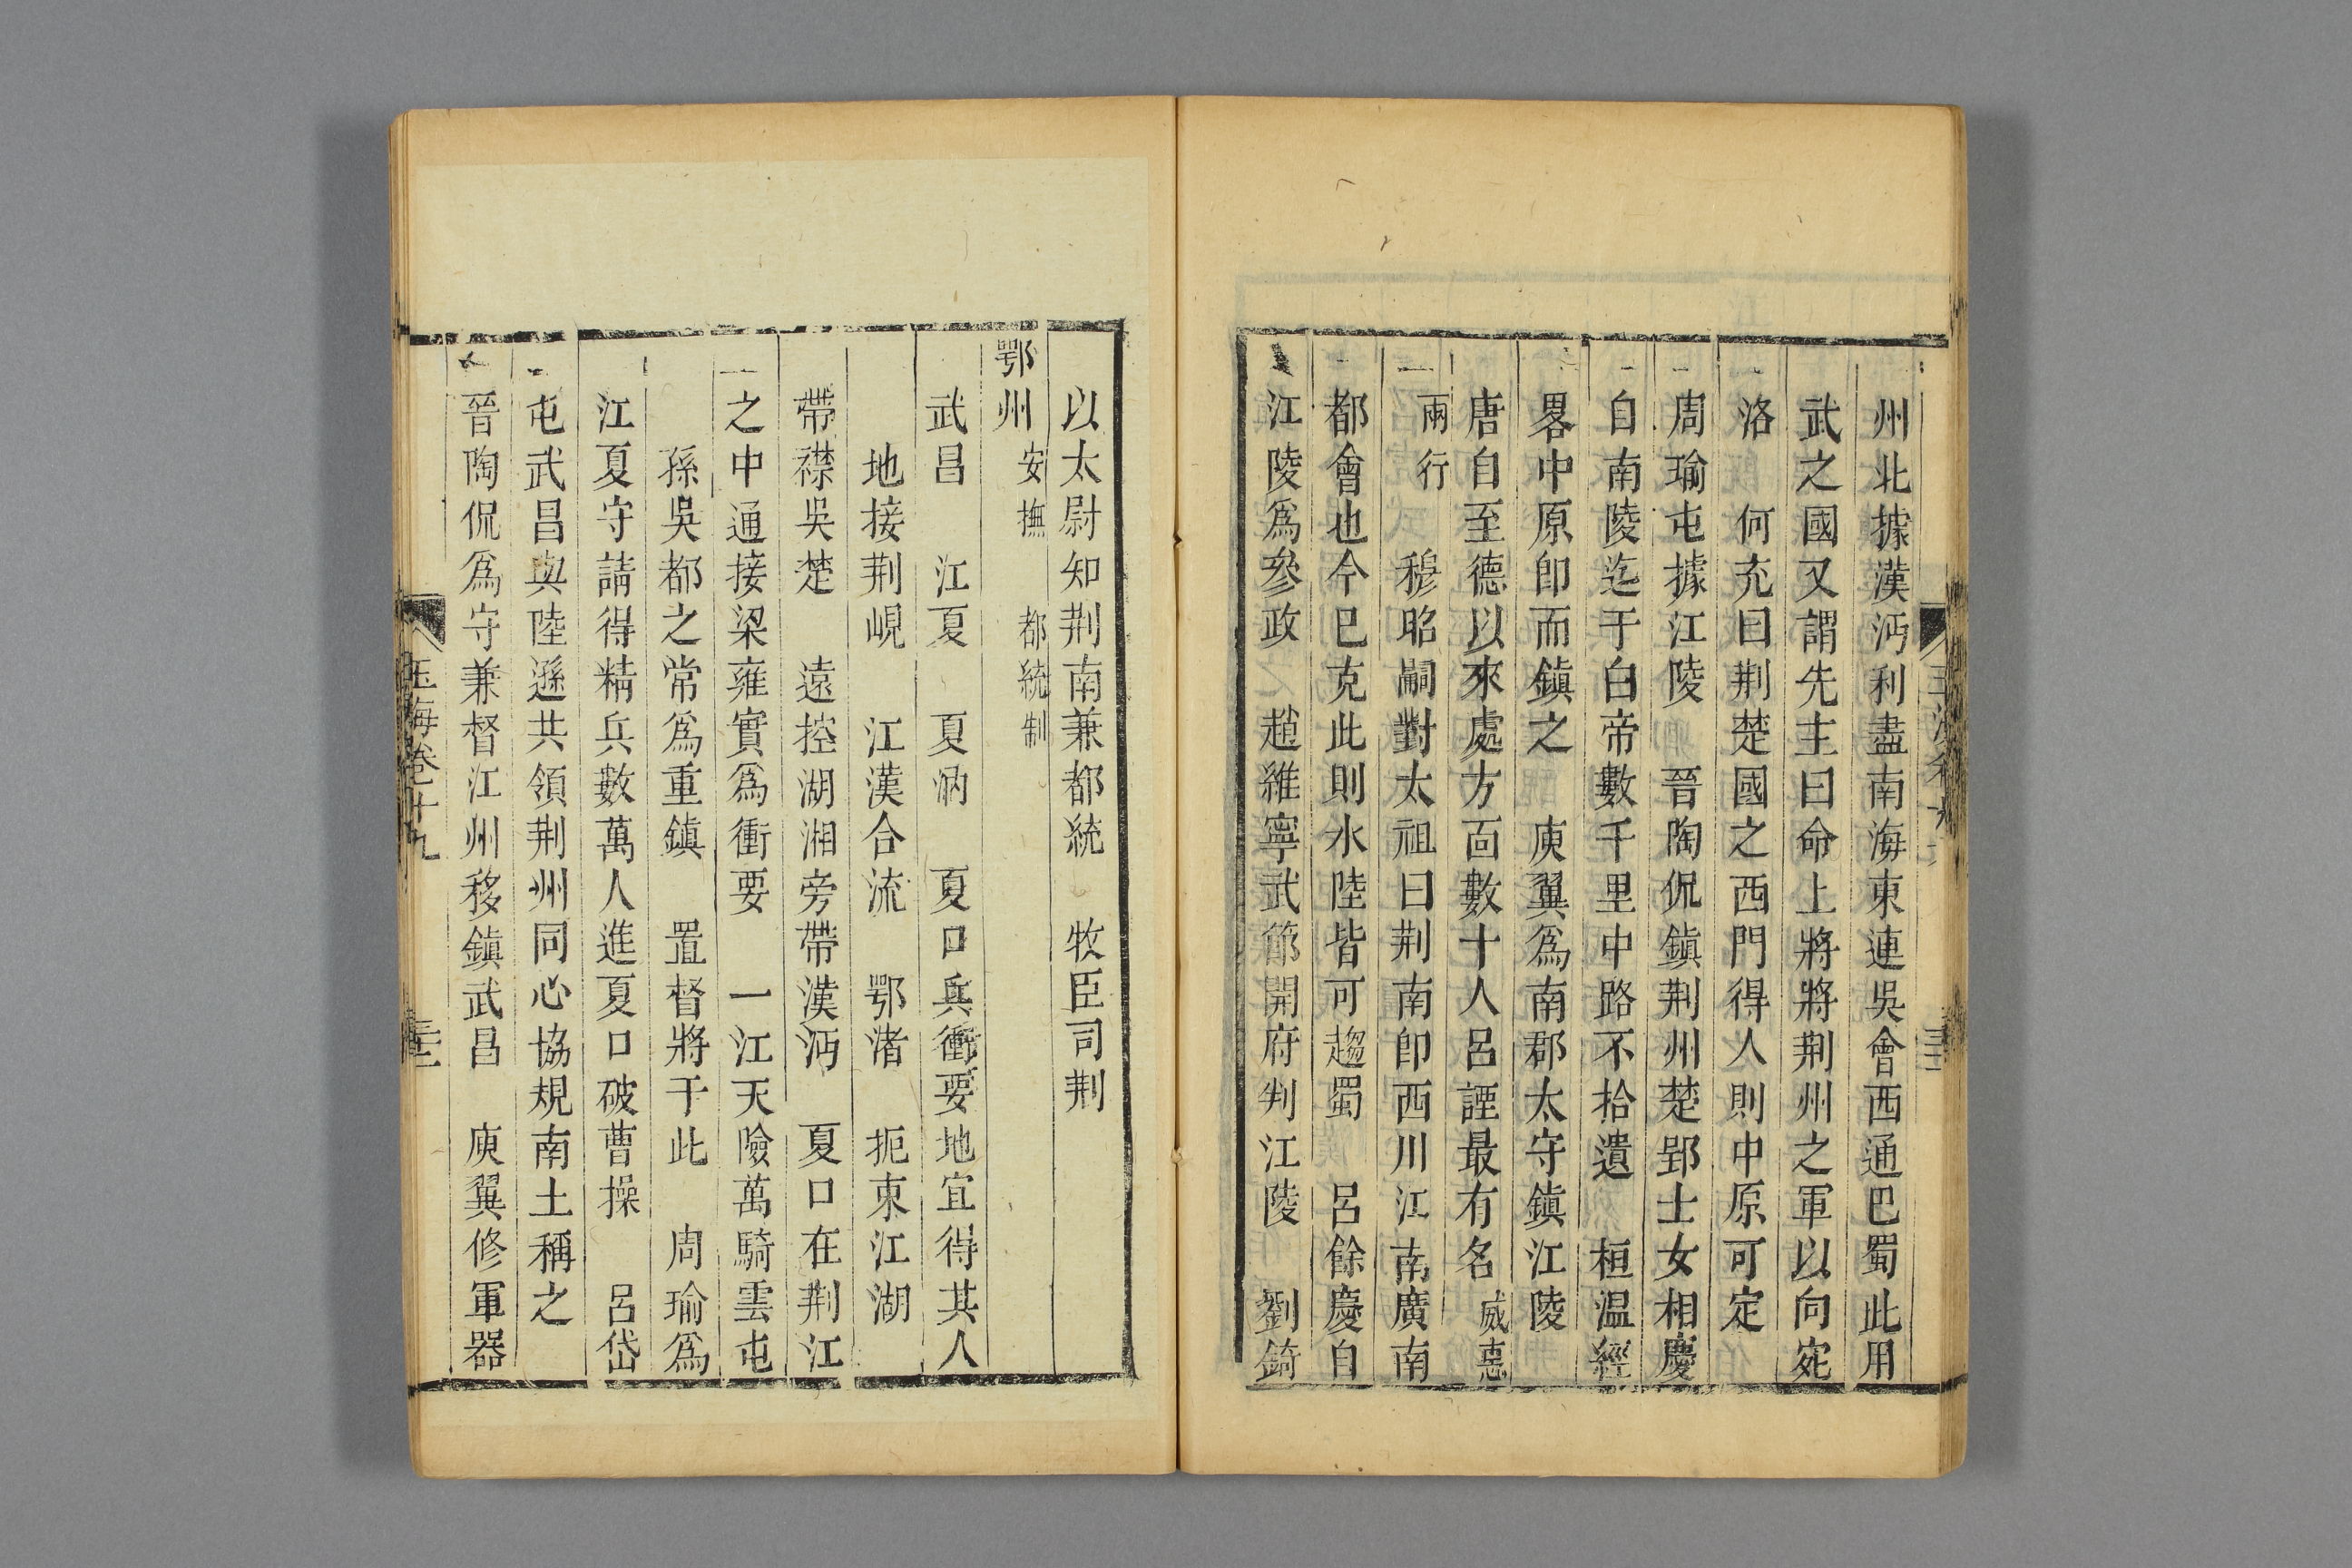 州北據漢沔利盡南海東連吳會西通巴蜀此用
武之國又謂先主曰命上將將荆州之軍以向宛
洛　何充曰荆楚國之西門得人則中原可定
周瑜屯據江陵　晉陶侃鎮荆州楚郢士女相慶
自南陵迄于白帝數千里中路不拾遺　桓温經
畧中原卽而鎮之　庾翼爲南郡太守鎮江陵
唐自至德以來處方面數十人呂諲最有名　威惠
兩行　穆昭嗣對太祖曰荆南卽西川江南廣南
都會也今巳克此則水陸皆可趨蜀　呂餘慶自
江陵爲參政　趙維寧武節開府判江陵　劉錡
以太尉知荆南兼都統　牧臣司荆
鄂州　安撫　都統制
武昌　江夏　夏汭　夏口兵衝要地宜得其人
地接荆峴　江漢合流　鄂渚　扼束江湖
帶襟吳楚　遠控湖湘旁帶漢沔　夏口在荆江
之中通接梁雍實爲衝要　一江天險萬騎雲屯
孫吳都之常爲重鎮　置督將于此　周瑜爲
江夏守請得精兵數萬人進夏口破曹操　呂岱
屯武昌與陸遜共領荆州同心協規南土稱之
晉陶侃爲守兼督江州移鎮武昌　庾翼修軍器
玉海卷十九